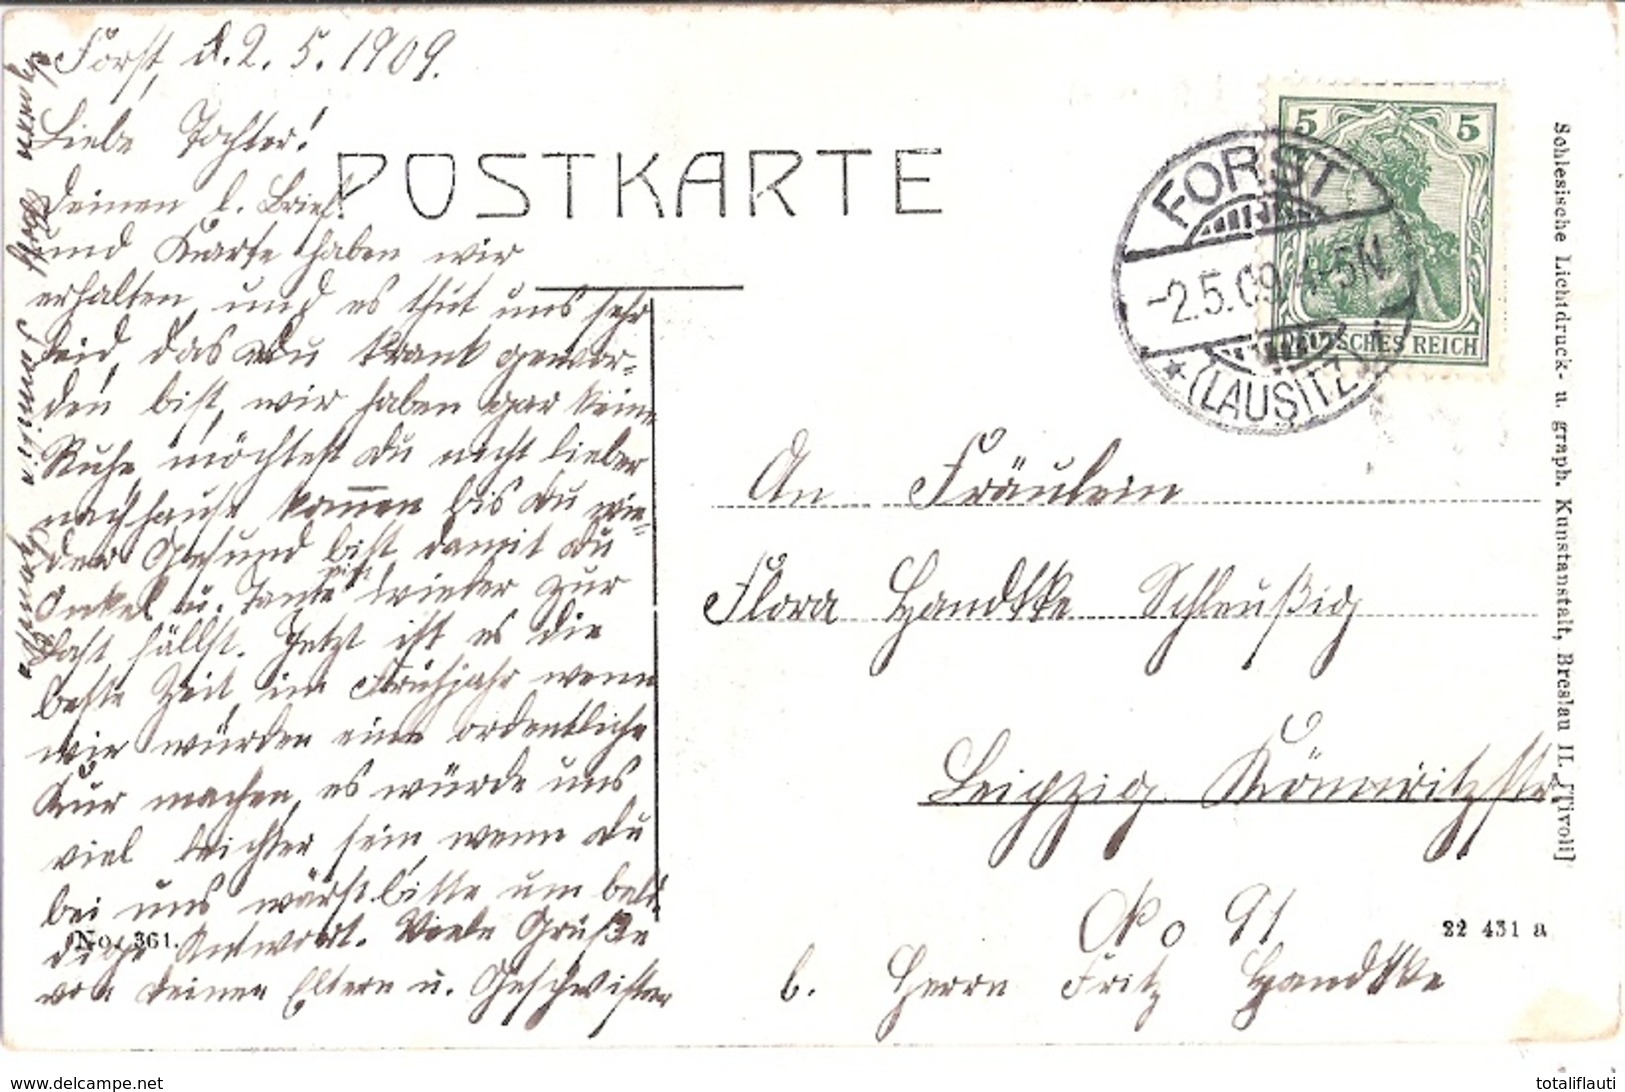 Forst, d. 2. 5. 1909.
Liebe Tochter!
Deinen l. Brief
und Karte haben wir
erhalten, und es thut uns sehr
leid, das Du krank gewor-
den bist, wir haben gar keine
Ruhe, möchtest Du nicht lieber
nachhause kom̅en bis Du wie-
der Gesund bist, damit Du
Onkel u. Tante nicht wieder zur
Last fällst. Jetzt ist es die
beste Zeit, im Frühjahr wenn
wir würden eine ordentliche
Kur machen, es würde uns
viel leichter sein wenn Du
bei uns wärst bitte um bal-
dige Antwort. Viele Grüße
von Deinen Eltern u. Geschwister
POSTKARTE
5 5
DEUTSCHES REICH
FORST
-2.5.09. 4-5N
* (LAUSITZ)
An Fräulein
Flora Handtke Schleußig
Leipzig Könneritzstr.
No 91
b. Herrn Fritz Handtke
No. 361.
22 431 a
Schlesische Lichtdruck- u. graph. Kunstanstalt, Breslau II. [Tivoli]
totaliflauti
www.delcampe.net